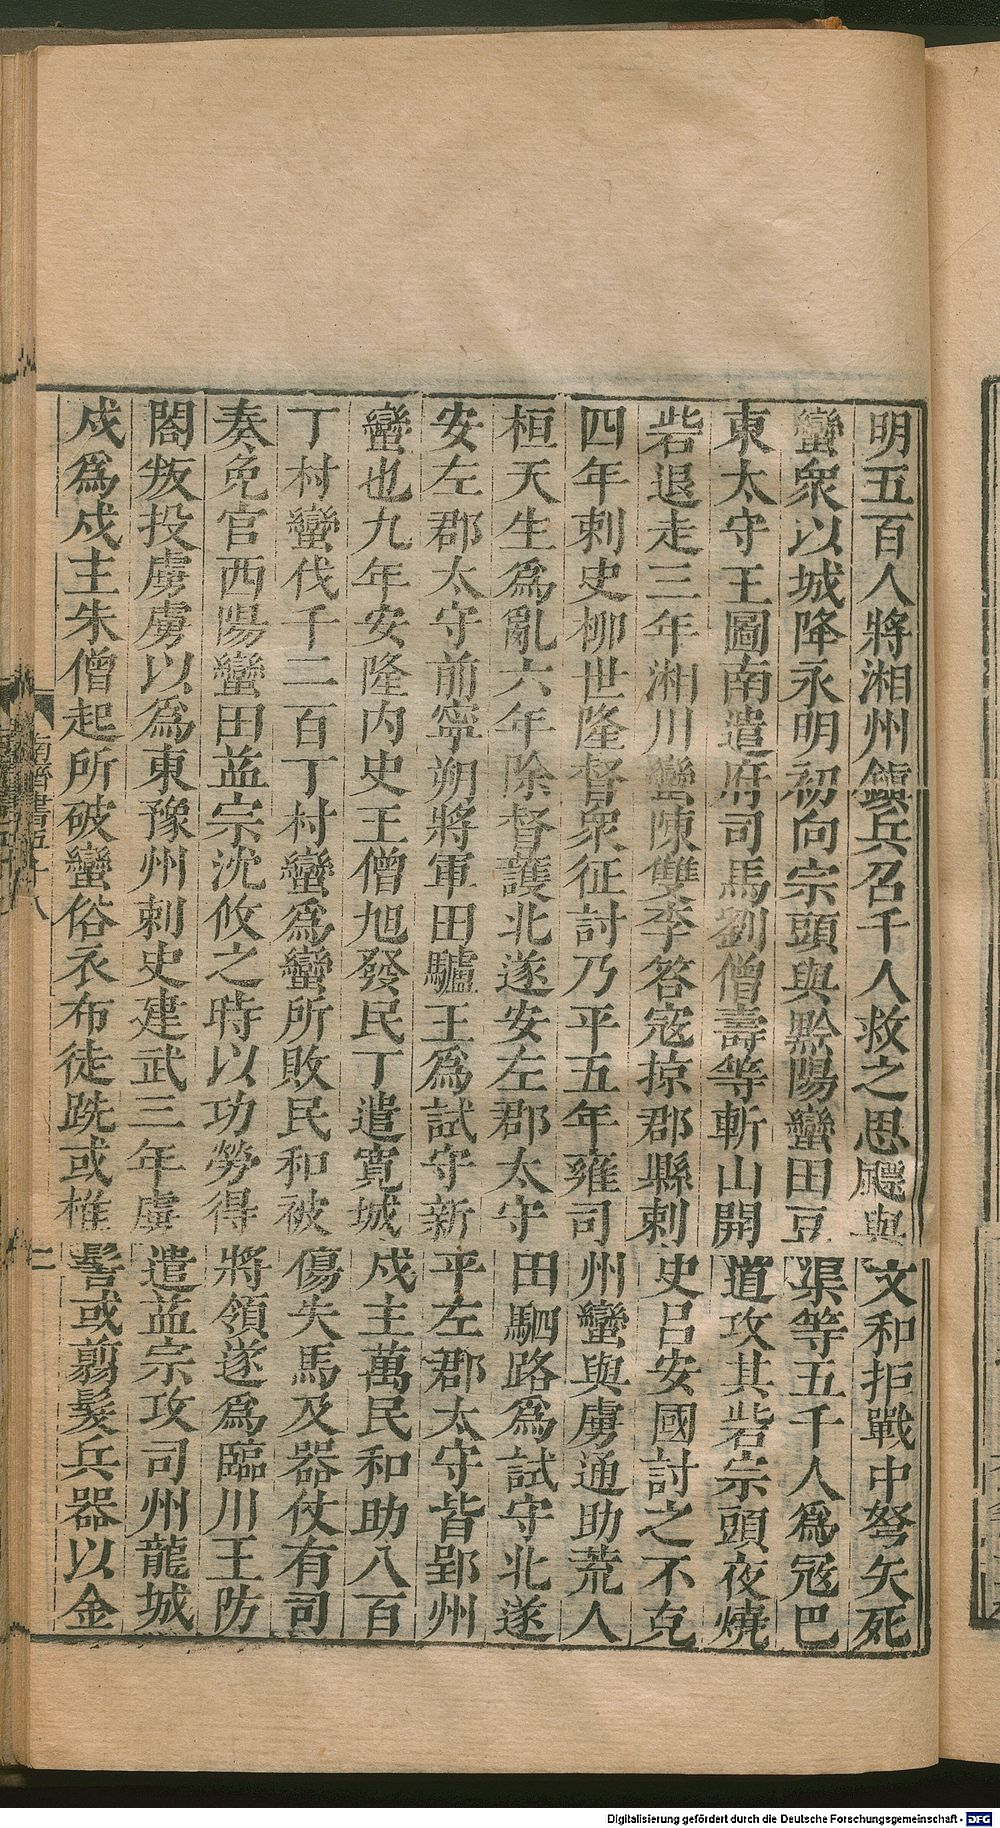 明五百人將湘州鎮兵召千人救之思飃與文和拒戰中弩矢死
蠻衆以城降永明初向宗頭與黔陽蠻田豆渠等五千人爲冦巴
東太守王圖南遣府司馬劉僧壽等斬山開道攻其砦宗頭夜燒
砦退走三年湘川蠻陳雙李答冦掠郡縣刺史呂安國討之不克
四年刺史柳世隆督衆征討乃平五年雍司州蠻與虜通助荒人
桓天生爲亂六年除督護北遂安左郡太守田駟路爲試守北遂
安左郡太守前寧朔將軍田驢王爲試守新平左郡太守皆郢州
蠻也九年安隆內史王僧旭發民丁遣寬城戍主萬民和助八百
丁村蠻伐千二百丁村蠻爲蠻所敗民和被傷失馬及器仗有司
奏免官西陽蠻田益宗沈攸之時以功勞得將領遂爲臨川王防
閤叛投虜虜以爲東豫州刺史建武三年虜遣益宗攻司州龍城
戍爲戍主朱僧起所破蠻俗衣布徒跣或椎髻或翦髮兵器以金